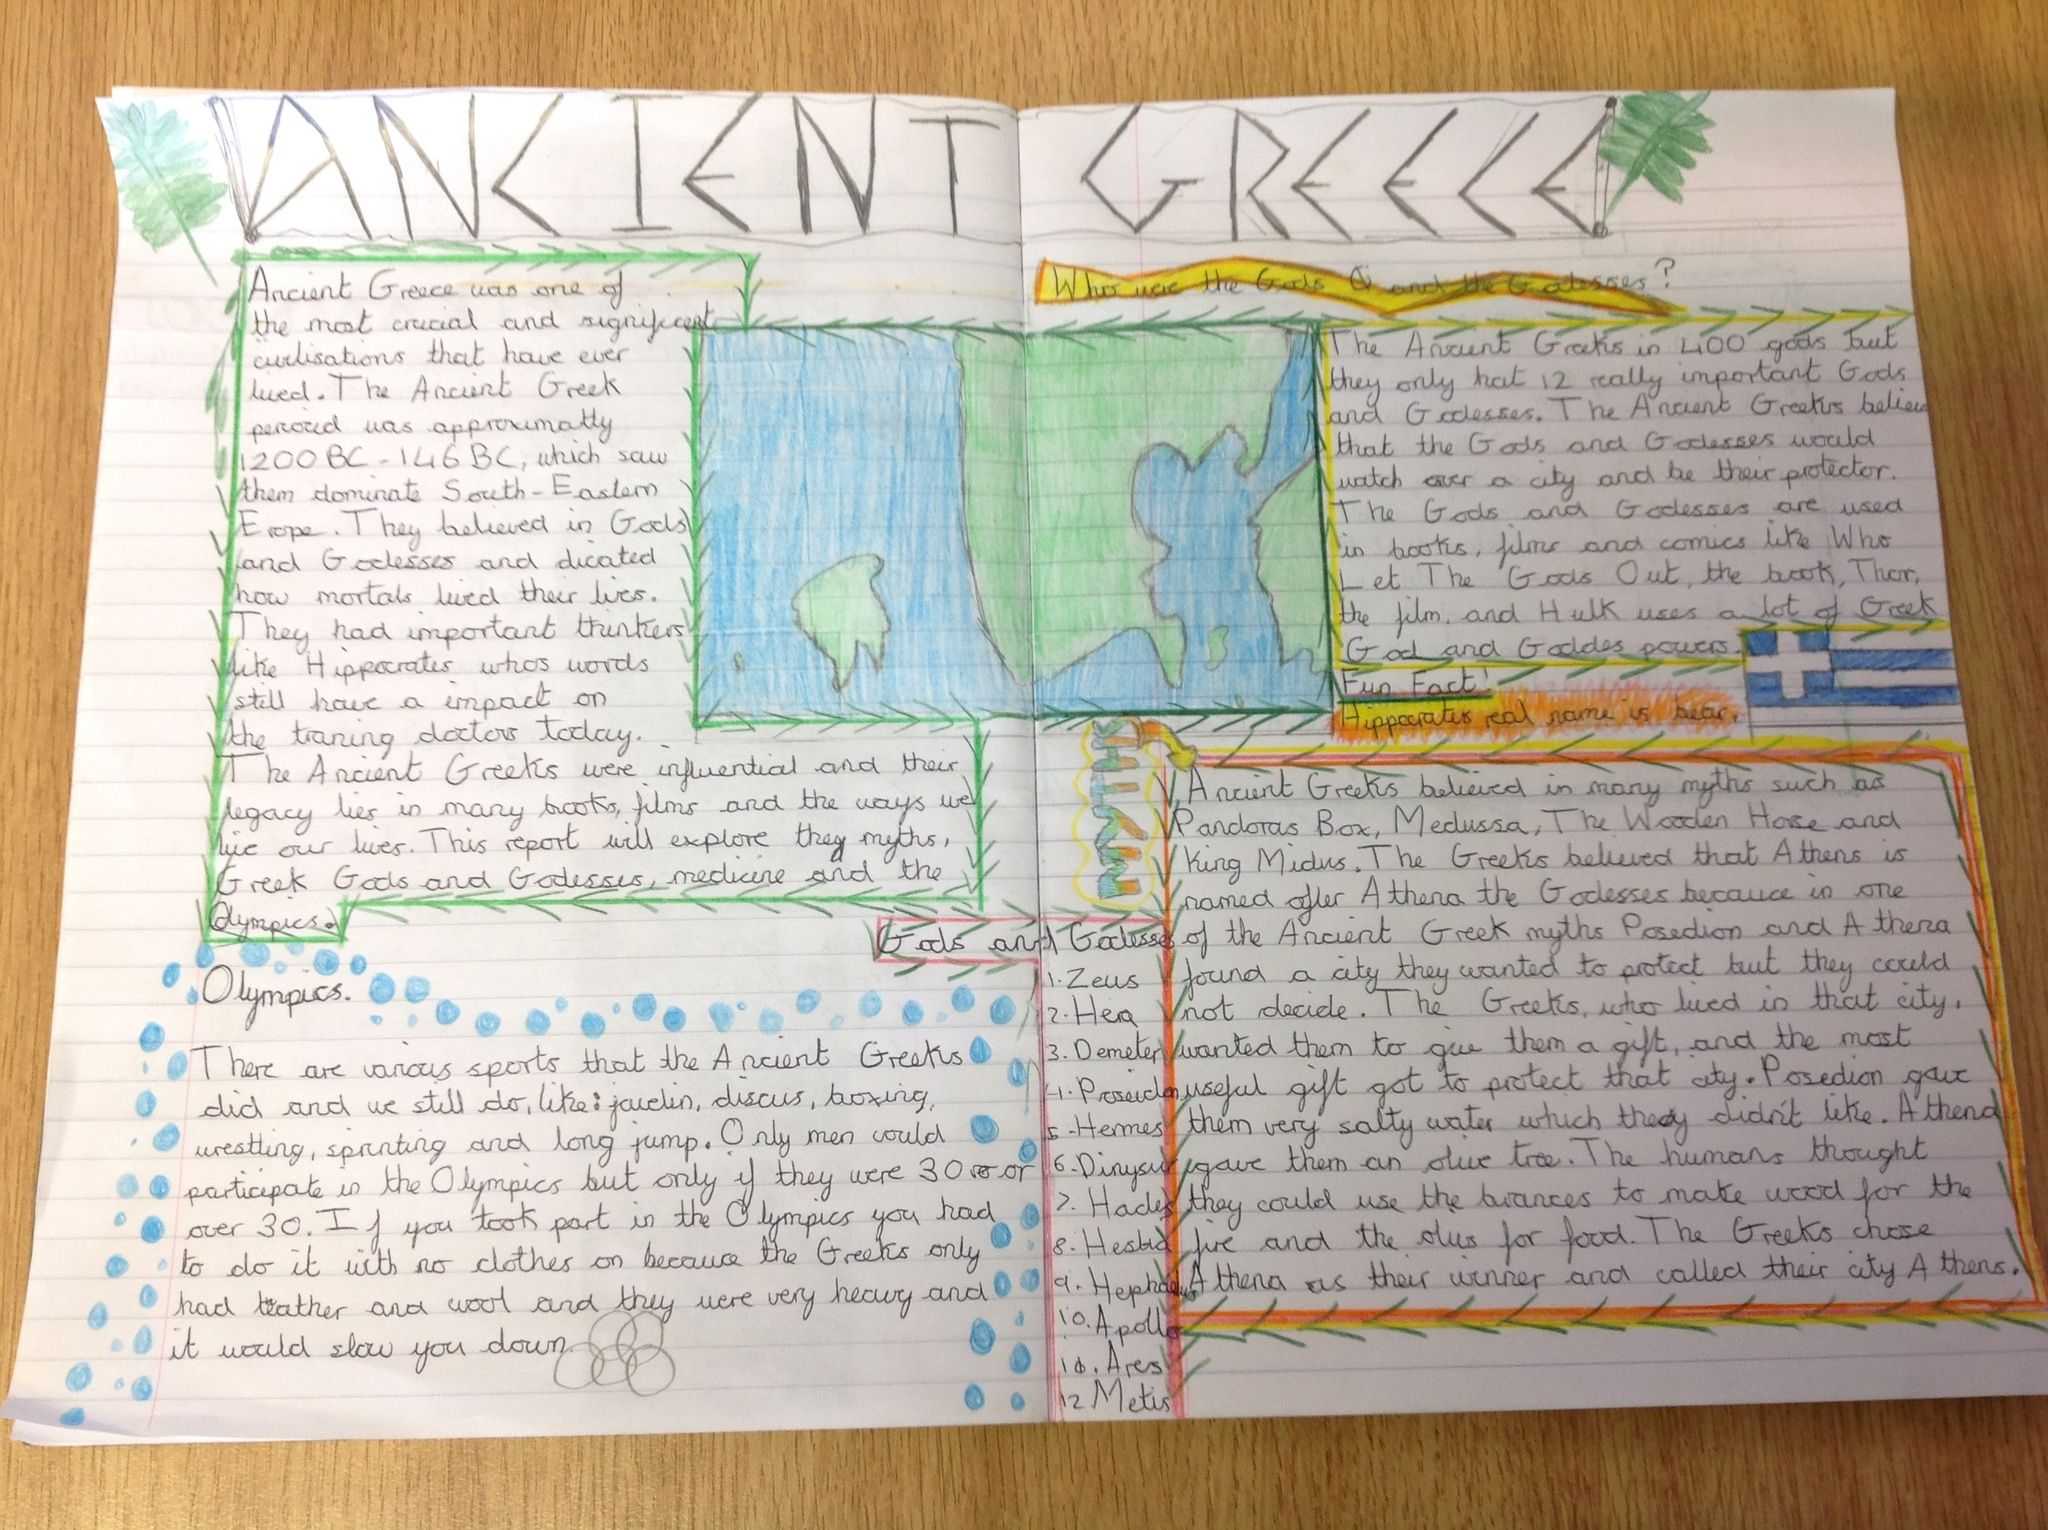 ANCIENT GREECE
Ancient Greece was one of
the most crucial and significent
civilisations that have ever
lived. The Ancient Greek
peroied was approximatly
1200 BC - 146 BC, which saw
them dominate South-Eastern
Erope. They believed in Gods
and Godesses and dicated
how mortals lived their lives.
They had important thinkers
like Hippocrates who's words
still have a impact on
the traning doctors today.
The Ancient Greeks were influential and their
legacy lies in many books, films and the ways we
live our lives. This report will explore they myths,
Greek Gods and Godesses, medicine and the
Olympics.
Olympics.
There are various sports that the Ancient Greeks
did and we still do, like: javelin, discus, boxing,
wrestling, sprinting and long jump. Only men could
participate in the Olympics but only if they were 30 or
over 30. If you took part in the Olympics you had
to do it with no clothes on because the Greeks only
had leather and wool and they were very heavy and
it would slow you down.
Who were the Gods and the Godesses?
The Ancient Greeks in 400 gods but
they only hat 12 really important Gods
and Godesses. The Ancient Greeks believe
that the Gods and Godesses would
watch over a city and be their protector.
The Gods and Godesses are used
in books, films and comics like Who
Let The Gods Out, the book, Thor,
the film, and Hulk uses a lot of Greek
God and Goddes powers.
Fun Fact!
Hippocrates real name is bear.
MYTHS
Gods and Godesses
1. Zeus
2. Hera
3. Demeter
4. Poseidon
5. Hermes
6. Dinysus
7. Hades
8. Hestia
9. Hephaeus
10. Apollo
11. Ares
12 Metis
Ancient Greeks believed in many myths such as
Pandoras Box, Medussa, The Wooden Horse and
King Midus. The Greeks believed that Athens is
named after Athena the Godesses because in one
of the Ancient Greek myths Posedion and Athena
found a city they wanted to protect but they could
not decide. The Greeks, who lived in that city,
wanted them to give them a gift, and the most
useful gift got to protect that city. Posedion gave
them very salty water which they didn't like. Athena
gave them an olive tree. The humans thought
they could use the brances to make wood for the
fire and the olivs for food. The Greeks chose
Athena as their winner and called their city Athens.